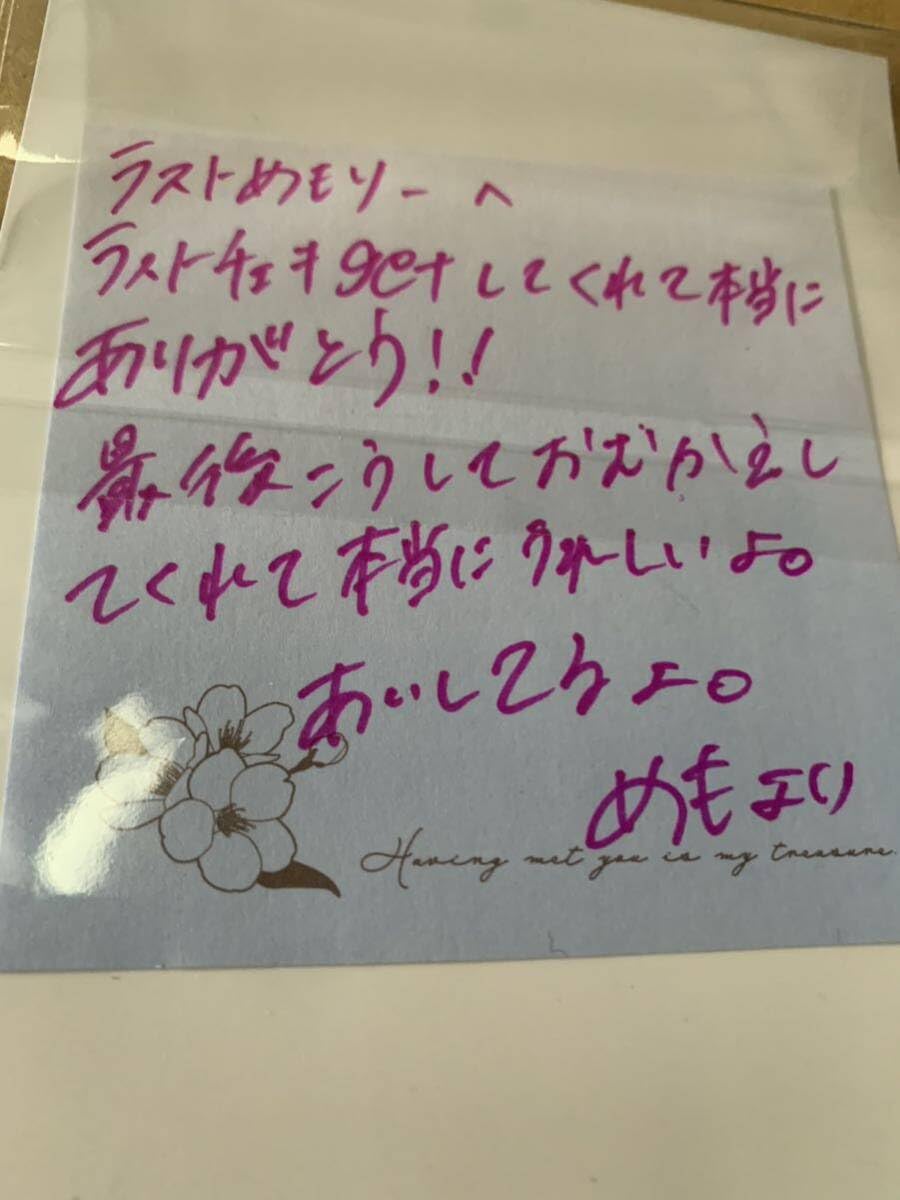 ラストめもりーへ
ラストチェキgetしてくれて本当に
ありがとう!!
最後こうしておむかえし
てくれて本当にうれしいよ。
あいしてるよ。
めもより
Having met you is my treasure.